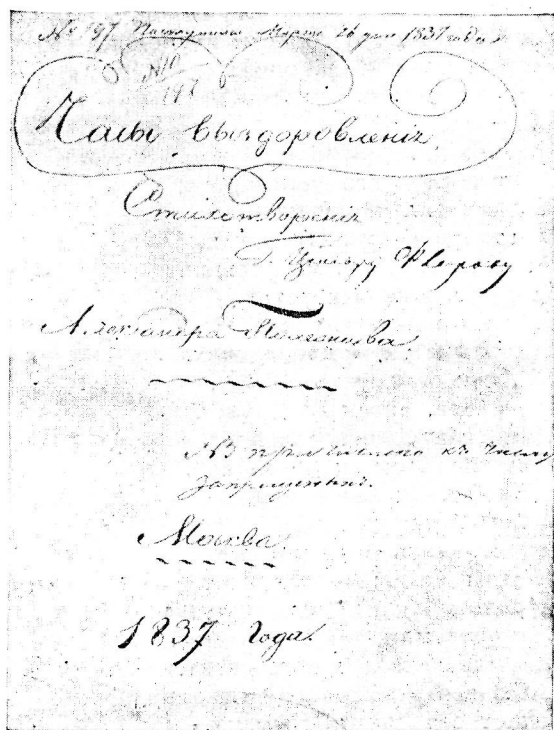 № 197. Поступила Марта 26 дня 1837 года
Часы выздоровленія.
Стихотворенія
Г. Цензору Флерову
Александра Полежаева
NB причислена къ числу
запрещенных.
Москва.
1837 года.